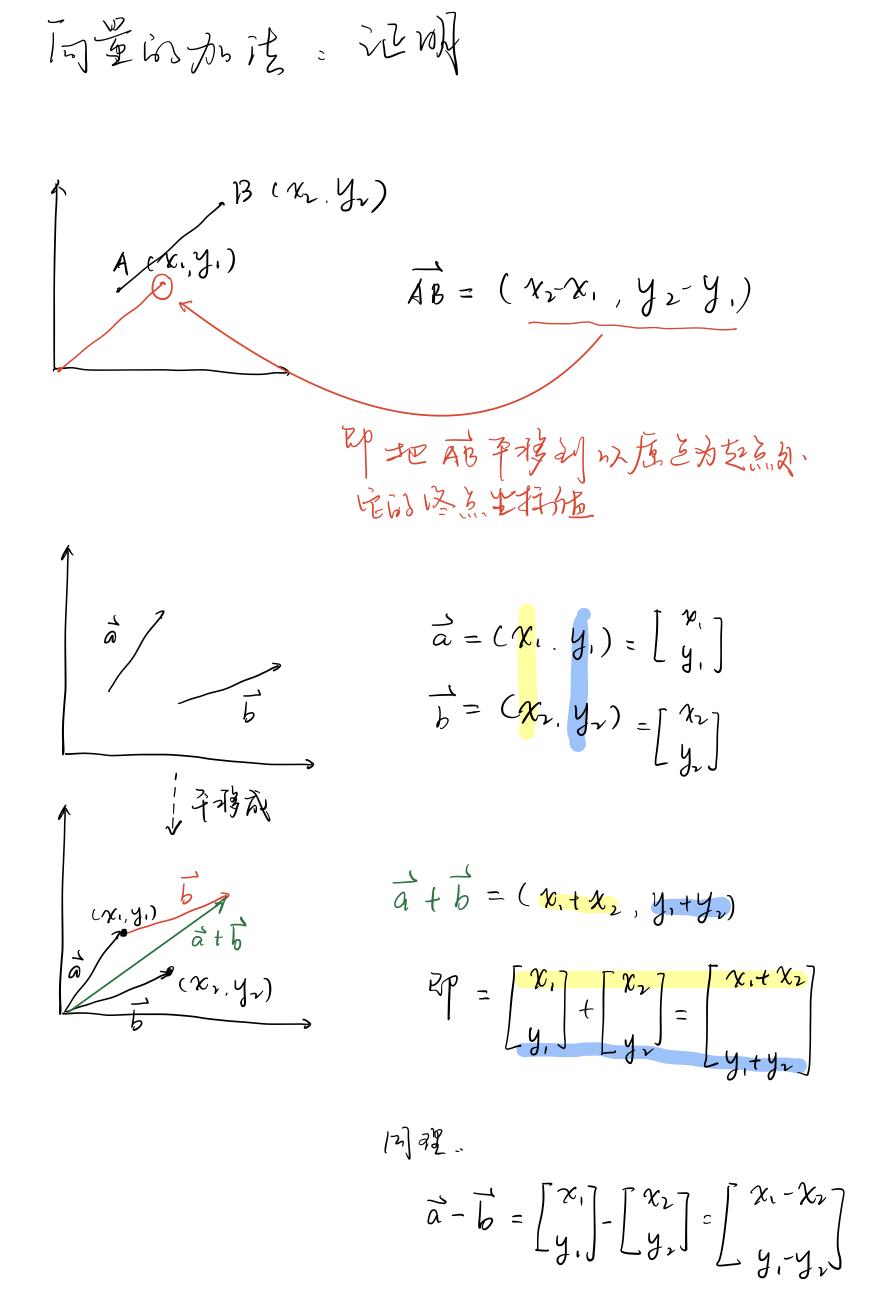 向量的加法：证明
B (x₂, y₂)
A (x₁, y₁)
$\overrightarrow{AB}$ = (x₂-x₁, y₂-y₁)
即把 $\overrightarrow{AB}$ 平移到以原点为起点处.
它的终点坐标值
$\vec{a}$
$\vec{b}$
$\vec{a}$ = (x₁, y₁) = $\begin{bmatrix} x_1 \\ y_1 \end{bmatrix}$
$\vec{b}$ = (x₂, y₂) = $\begin{bmatrix} x_2 \\ y_2 \end{bmatrix}$
平移成
$\vec{b}$
(x₁, y₁)
$\vec{a}+\vec{b}$
$\vec{a}$
(x₂, y₂)
$\vec{b}$
$\vec{a}+\vec{b}$ = (x₁+x₂, y₁+y₂)
即 = $\begin{bmatrix} x_1 \\ y_1 \end{bmatrix} + \begin{bmatrix} x_2 \\ y_2 \end{bmatrix} = \begin{bmatrix} x_1+x_2 \\ y_1+y_2 \end{bmatrix}$
同理..
$\vec{a}-\vec{b} = \begin{bmatrix} x_1 \\ y_1 \end{bmatrix} - \begin{bmatrix} x_2 \\ y_2 \end{bmatrix} = \begin{bmatrix} x_1-x_2 \\ y_1-y_2 \end{bmatrix}$